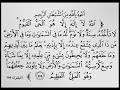 أعوذ بالله من الشيطان الرجيم
ٱللَّهُ لَآ إِلَٰهَ إِلَّا هُوَ ٱلْحَىُّ ٱلْقَيُّومُ
لَا تَأْخُذُهُۥ سِنَةٌ وَلَا نَوْمٌ لَّهُۥ مَا فِى ٱلسَّمَٰوَٰتِ وَمَا فِى
ٱلْأَرْضِ مَن ذَا ٱلَّذِى يَشْفَعُ عِندَهُۥٓ إِلَّا بِإِذْنِهِۦ يَعْلَمُ
مَا بَيْنَ أَيْدِيهِمْ وَمَا خَلْفَهُمْ وَلَا يُحِيطُونَ بِشَىْءٍ مِّنْ
عِلْمِهِۦٓ إِلَّا بِمَا شَآءَ وَسِعَ كُرْسِيُّهُ ٱلسَّمَٰوَٰتِ
وَٱلْأَرْضَ وَلَا يَـُٔودُهُۥ حِفْظُهُمَا
وَهُوَ ٱلْعَلِىُّ ٱلْعَظِيمُ